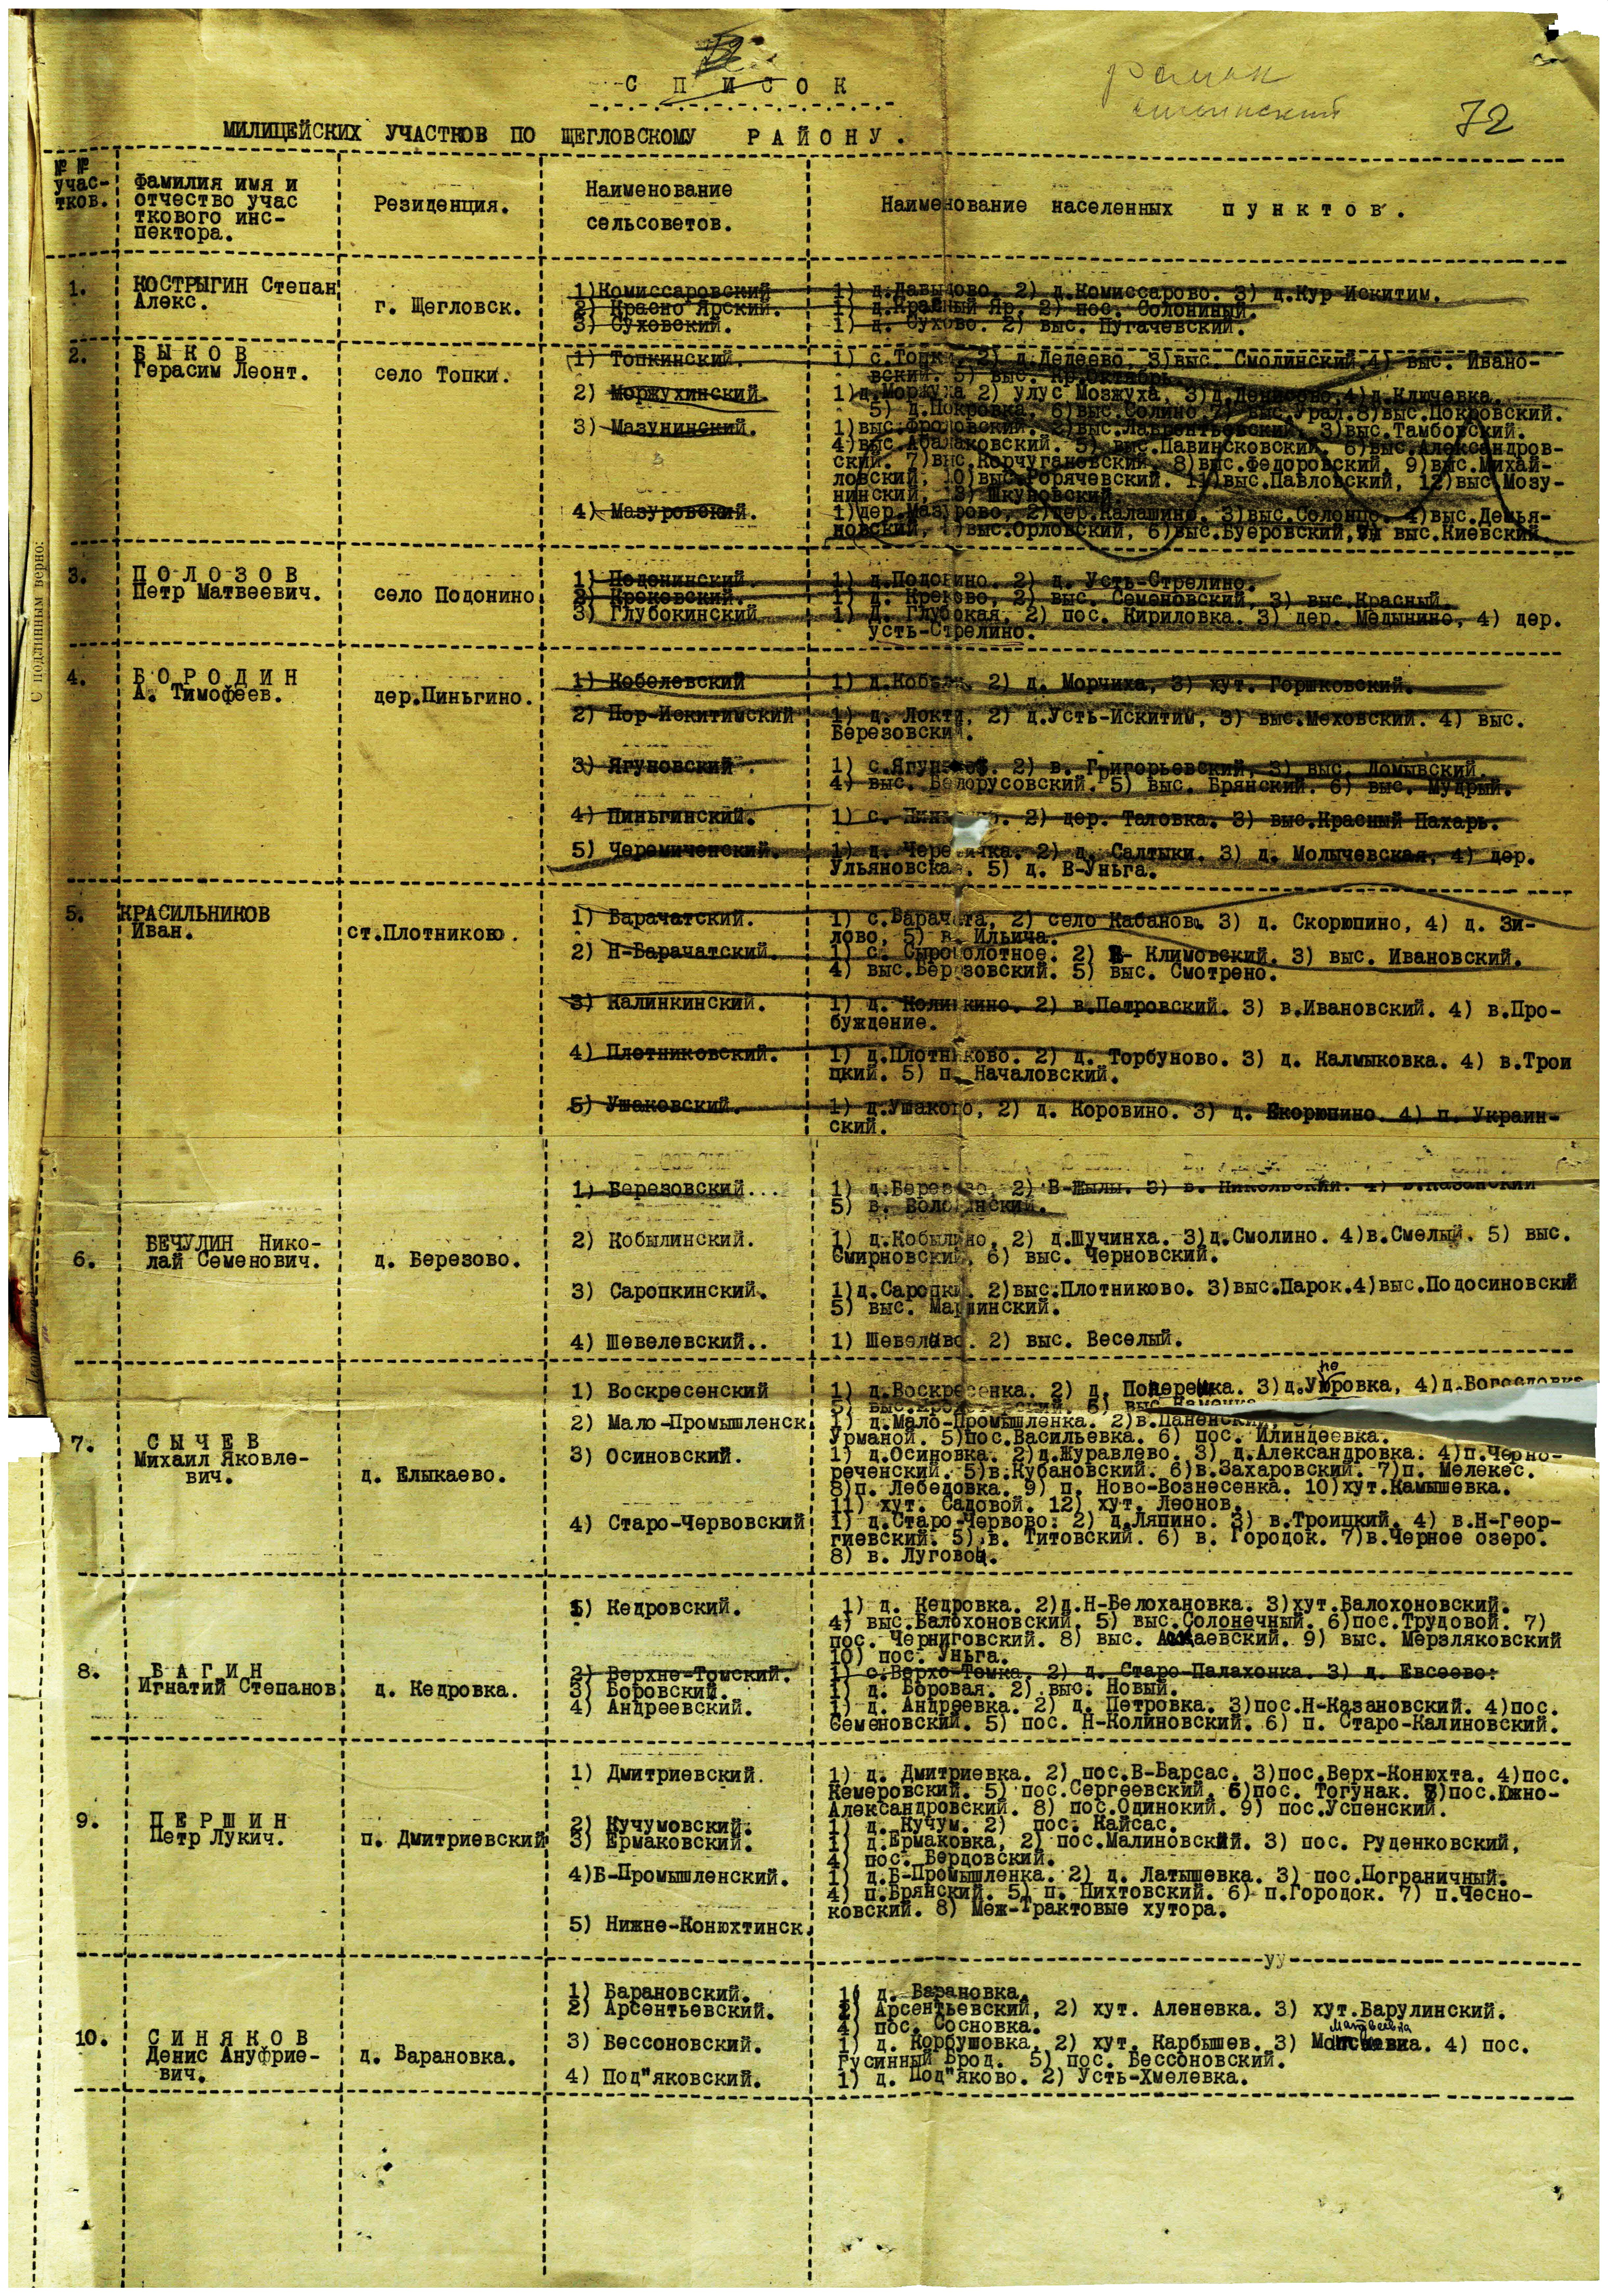 С П И С О К
72
МИЛИЦЕЙСКИХ УЧАСТКОВ ПО ЩЕГЛОВСКОМУ Р А Й О Н У .
№ №
учас-
тков.
Фамилия имя и
отчество учас
ткового инс-
пектора.
Резиденция.
Наименование
сельсоветов.
Наименование населенных п у н к т о в .
1.
КОСТРЫГИН Степан
Алекс.
г. Щегловск.
1)Комиссаровский 1) д.Давыдово. 2) д.Комиссарово. 3) д.Кур Искитим.
2) Красно Ярский. 1) д.Красный Яр, 2) пос. Солониный.
3) Суховский. 1) д. Сухово. 2) выс. Пугачевский.
2.
Б Ы К О В
Герасим Леонт.
село Топки.
1) Топкинский. 1) с.Топки, 2) д.Дедеево, 3)выс. Смолинский.4) выс. Ивано-
вский. 5) выс. Кр.Октябрь
2) Моржухинский. 1)д.Моржуха 2) улус Мозжуха, 3)д.Денисово,4)д.Ключевка.
5) д.Покровка, 6)выс.Солино 7) выс.Урал.8)выс.Покровский.
3) Мазунинский. 1)выс.Фроловский. 2)выс.Лаврентьевский, 3)выс.Тамбовский.
4)выс.Абалаковский. 5) выс.Павинсковский. 6)выс.Александров-
ский. 7)выс.Корчугановский. 8)выс.Федоровский, 9)выс.Михай-
ловский, 10)выс.Горячевский. 11)выс.Павловский, 12)выс.Мозу-
нинский, 13) Шкуровский.
4) Мазуровский. 1)дер.Мазурово, 2)дер.Калашино. 3)выс.Солонцо. 4)выс.Демья-
новский, )выс.Орловский, 6)выс.Буеровский, выс.Киевский.
3.
П О Л О З О В
Петр Матвеевич.
село Подонино
1) Подонинский. 1) д.Подонино. 2) д. Усть-Стрелино.
2) Крековский. 1) д. Креково, 2) выс. Семеновский, 3) выс.Красный.
3) Глубокинский 1) Д. Глубокая, 2) пос. Кириловка. 3) дер. Медынино, 4) дер.
усть-Стрелино.
4.
Б О Р О Д И Н
А. Тимофеев.
дер.Пиньгино.
1) Кобелевский 1) д.Кобы 2) д. Морчиха, 3) хут. Горшковский.
2) Пор-Искитимский 1) д. Локти, 2) д.Усть-Искитим, 3) выс.Меховский. 4) выс.
Березовский.
3) Ягуновский 1) с.Ягуново. 2) в. Григорьевский, 3) выс. Ломывский.
4) выс. Белорусовский. 5) выс. Брянский. 6) выс. Мудрый.
4) Пиньгинский. 1) с. 2) дер. Таловка. 3) выс.Красный Пахарь.
5) Черемиченский. 1) д. Черемичка. 2) д. Салтыки. 3) д. Молычевская, 4) дер.
Ульяновская. 5) д. В-Уньга.
5.
КРАСИЛЬНИКОВ
Иван.
ст.Плотниково.
1) Барачатский. 1) с.Барачата, 2) село Кабаново 3) д. Скорюпино, 4) д. Зи-
лово, 5) в. Ильича.
2) Н-Барачатский. 1) с. Сыроболотное. 2) В- Климовский. 3) выс. Ивановский.
4) выс.Березовский. 5) выс. Смотрено.
3) Калинкинский. 1) д. Колинкино. 2) в.Петровский. 3) в.Ивановский. 4) в.Про-
буждение.
4) Плотниковский. 1) д.Плотниково. 2) д. Торбуново. 3) д. Калмыковка. 4) в.Трои
цкий. 5) п. Началовский.
5) Ушаковский. 1) д.Ушаково, 2) д. Коровино. 3) д. Скорюпино. 4) п. Украин-
ский.
6.
БЕЧУЛИН Нико-
лай Семенович.
д. Березово.
1) Березовский... 1) д.Березово, 2) В-Жылы. 3) в. Никольский. 4) в.Казанский
5) в. Вологинский.
2) Кобылинский. 1) д.Кобылино. 2) д.Шучинха. 3)д.Смолино. 4)в.Смелый. 5) выс.
Смирновский, 6) выс. Черновский.
3) Саропкинский. 1)д.Саропки. 2)выс.Плотниково. 3)выс.Парок.4)выс.Подосиновский
5) выс. Маршинский.
4) Шевелевский.. 1) Шевелево. 2) выс. Веселый.
7.
С Ы Ч Е В
Михаил Яковле-
вич.
д. Елыкаево.
1) Воскресенский 1) д.Воскресенка. 2) д. 3)д. 4)д.Богословка
2) Мало-Промышленск. 1) д.Мало-Промышленка. 2)в.Паненский,
Урманой. 5)пос.Васильевка. 6) пос. Илиндеевка.
3) Осиновский. 1) д.Осиновка. 2)д.Журавлево. 3) д.Александровка. 4)п.Черно-
реченский. 5)в.Кубановский. 6)в.Захаровский. 7)п. Мелекес.
8)п. Лебедовка. 9) п. Ново-Вознесенка. 10)хут.Камышевка.
11) хут. Садовой. 12) хут. Леонов.
4) Старо-Червовский 1) д.Старо-Червово: 2) д.Ляпино. 3) в.Троицкий. 4) в.Н-Геор-
гиевский. 5) в. Титовский. 6) в. Городок. 7)в.Черное озеро.
8) в. Луговой.
8.
В А Г И Н
Игнатий Степанов.
д. Кедровка.
1) Кедровский. 1) д. Кедровка. 2)д.Н-Белохановка. 3)хут.Балохоновский.
4) выс.Балохоновский. 5) выс.Солонечный. 6)пос.Трудовой. 7)
пос. Черниговский. 8) выс. 9) выс. Мерзляковский
10) пос. Уньга.
2) Верхне-Томский. 1) с.Верхо-Томка, 2) д. Старо-Палахонка. 3) д. Евсеево:
3) Боровский. 1) д. Боровая. 2) выс. Новый.
4) Андреевский. 1) д. Андреевка. 2) д. Петровка. 3)пос.Н-Казановский. 4)пос.
Семеновский. 5) пос. Н-Колиновский. 6) п. Старо-Калиновский.
9.
П Е Р Ш И Н
Петр Лукич.
п. Дмитриевский
1) Дмитриевский. 1) д. Дмитриевка. 2) пос.В-Барсас. 3)пос.Верх-Конюхта. 4)пос.
Кемеровский. 5) пос.Сергеевский, 6)пос. Тогунак. 7)пос.Южно-
Александровский. 8) пос.Одинокий. 9) пос.Успенский.
2) Кучумовский. 1) д. Кучум. 2) пос. Кайсас.
3) Ермаковский. 1) д.Ермаковка, 2) пос.Малиновский. 3) пос. Руденковский,
4) пос. Бердовский.
4)Б-Промышленский. 1) д.Б-Промышленка. 2) д. Латышевка. 3) пос.Пограничный.
4) п.Брянский. 5) п. Пихтовский. 6) п.Городок. 7) п.Чесно-
ковский. 8) Меж-Трактовые хутора.
5) Нижне-Конюхтинск.
10.
С И Н Я К О В
Денис Ануфрие-
вич.
д. Барановка.
1) Барановский. 1) д. Барановка.
2) Арсентьевский. Арсентьевский, 2) хут. Аленевка. 3) хут.Варулинский.
4) пос. Сосновка.
3) Бессоновский. 1) д. Корбушовка, 2) хут. Карбышев. 3) 4) пос.
Русинный Брод. 5) пос. Бессоновский.
4) Под"яковский. 1) д. Под"яково. 2) Усть-Хмелевка.